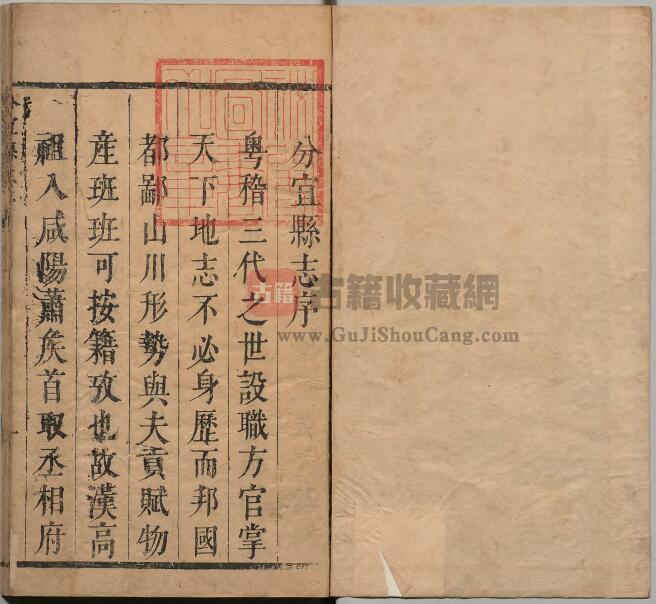 分宜縣志序
粤稽三代之世設職方官掌
天下地志不必身歷而邦國
都鄙山川形勢與夫貢賦物
産班班可按籍攷也故漢高
祖入咸陽蕭矦首取丞相府
古籍
古籍收藏網
www.GuJiShouCang.com